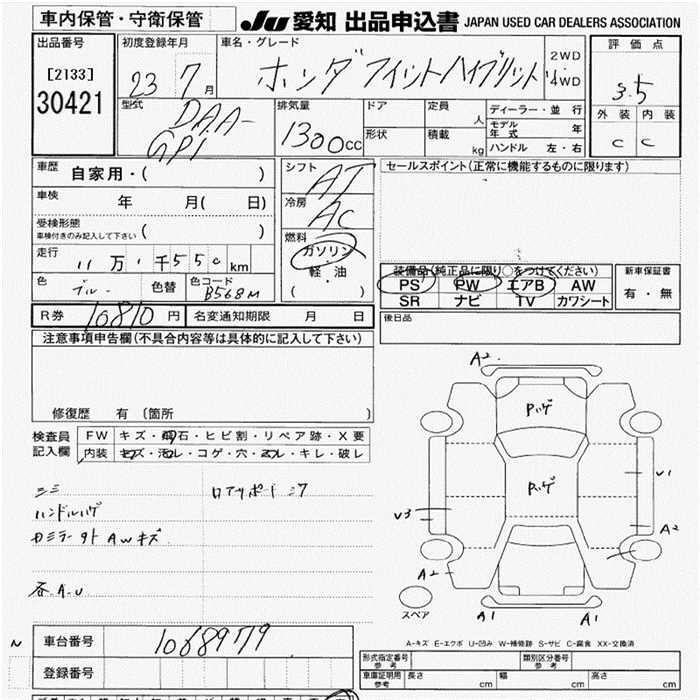 車内保管・守衛保管 JU 愛知 出品申込書 JAPAN USED CAR DEALERS ASSOCIATION
出品番号 [2133] 30421
初度登録年月 23 7月
車名・グレード ホンダ フィットハイブリッド 2WD・4WD
評価点 3.5
外装 内装
C C
型式 DAA-GP1
排気量 1300cc
ドア 形状
定員 人 積載 kg
ディーラー・並行
モデル年式 年
ハンドル 左・右
車歴 自家用・( )
車検 年 月( 日)
受検形態 車検付きのみ記入して下さい ( )
走行 11万1千550km
色 ブルー 色替 色コード B568M
シフト AT
冷房 AC
燃料 ガソリン・軽・油 ( )
セールスポイント(正常に機能するものに限ります)
装備品(純正品に限り○をつけてください)
PS PW エアB AW
SR ナビ TV カワシート
新車保証書 有・無
後日品
R券 10810円 名変通知期限 月 日
注意事項申告欄(不具合内容等は具体的に記入して下さい)
修復歴 有 (箇所 )
検査員記入欄
FW キズ・飛石・ヒビ割・リペア跡・X要
内装 キズ・汚レ・コゲ・穴・スレ・キレ・破レ
ハンドルハゲ
AWキズ
各A.U
A2
V1
V3
A2
A2
A1 A1
スペア
A-キズ E-エクボ U-凹み W-補修跡 S-サビ C-腐食 XX-交換済
N
車台番号 1068979
登録番号
形式指定番号 参考 類別区分番号 参考
車庫証明用 参考 長さ cm 幅 cm 高さ cm